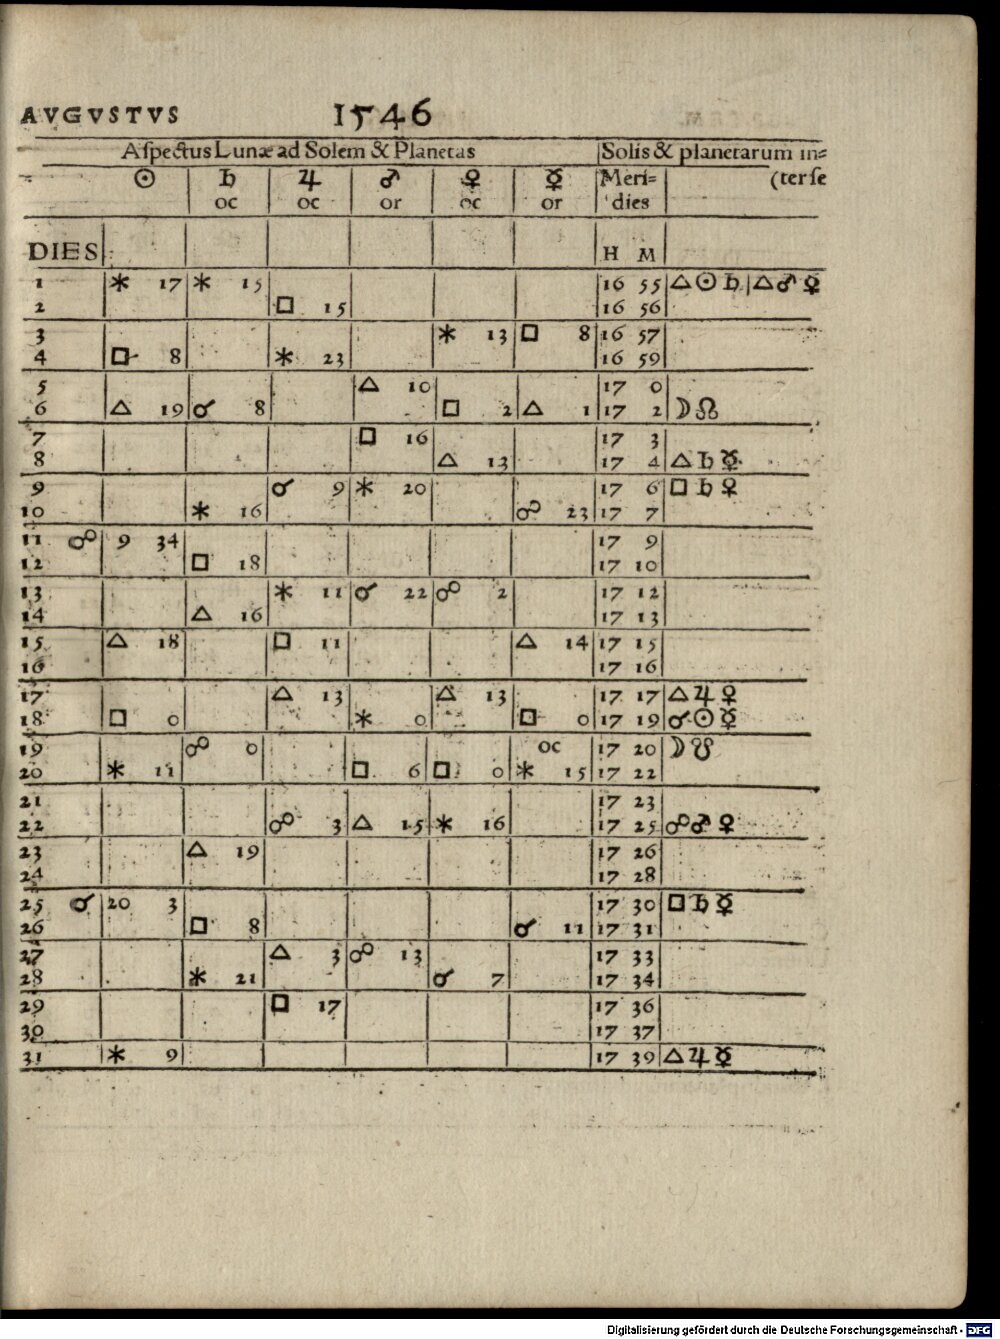 AVGVSTVS 1546
Aspectus Lunæ ad Solem & Planetas Solis & planetarum in=
☉ ♄ ♃ ♂ ♀ ☿ Meri= (ter se
oc oc or oc or dies
DIES H M
1 ⚹ 17 ⚹ 15 16 55 △ ☉ ♄ △ ♂ ♀
2 □ 15 16 56
3 ⚹ 13 □ 8 16 57
4 □ 8 ⚹ 23 16 59
5 △ 10 17 0
6 △ 19 ☌ 8 □ 2 △ 1 17 2 ☽ ☊
7 □ 16 17 3
8 △ 13 17 4 △ ♄ ☿
9 ☌ 9 ⚹ 20 17 6 □ ♄ ♀
10 ⚹ 16 ☍ 23 17 7
11 ☍ 9 34 17 9
12 □ 18 17 10
13 ⚹ 11 ☌ 22 ☍ 2 17 12
14 △ 16 17 13
15 △ 18 □ 11 △ 14 17 15
16 17 16
17 △ 13 △ 13 17 17 △ ♃ ♀
18 □ 0 ⚹ 0 □ 0 17 19 ☌ ☉ ☿
19 ☍ 0 oc 17 20 ☽ ☋
20 ⚹ 11 □ 6 □ 0 ⚹ 15 17 22
21 17 23
22 ☍ 3 △ 15 ⚹ 16 17 25 ☍ ♂ ♀
23 △ 19 17 26
24 17 28
25 ☌ 20 3 17 30 □ ♄ ☿
26 □ 8 ☌ 11 17 31
27 △ 3 ☍ 13 17 33
28 ⚹ 21 ☌ 7 17 34
29 □ 17 17 36
30 17 37
31 ⚹ 9 17 39 △ ♃ ☿
Digitalisierung gefördert durch die Deutsche Forschungsgemeinschaft - DFG